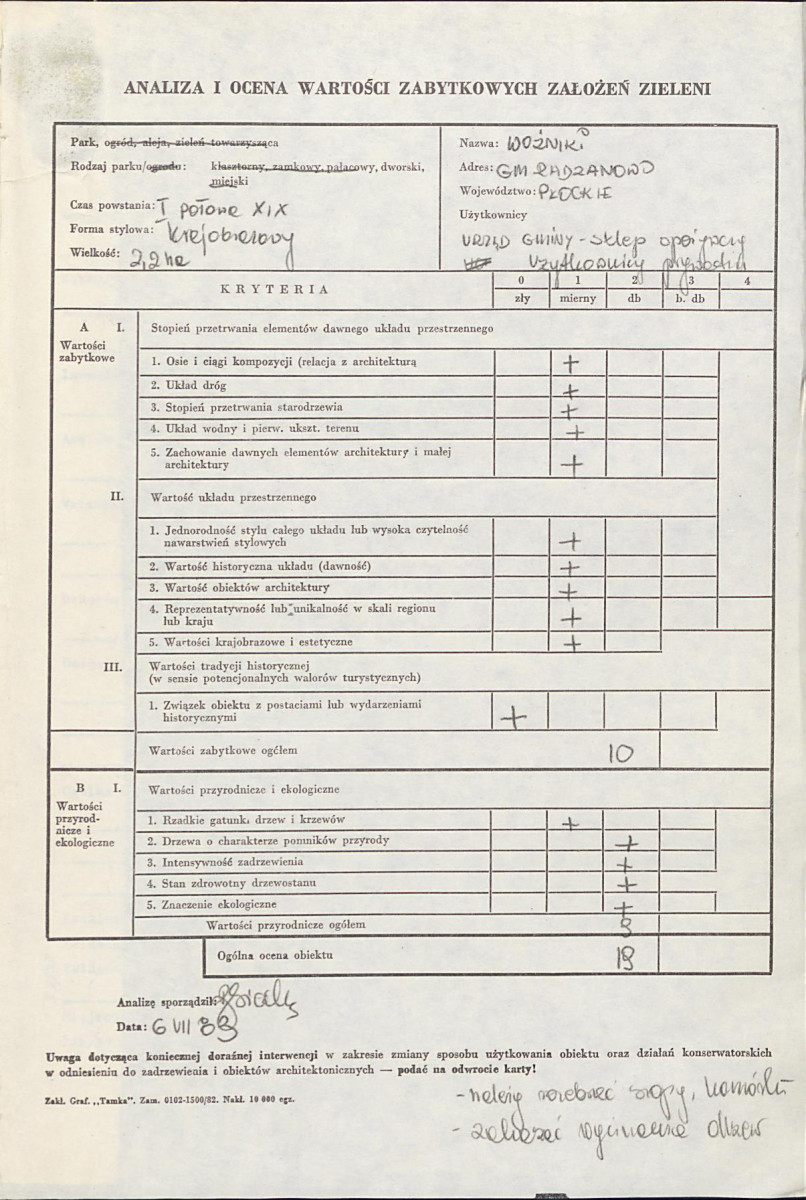 ANALIZA I OCENA WARTOŚCI ZABYTKOWYCH ZAŁOŻEŃ ZIELENI
Park, ogród, aleja, zieleń towarzysząca
Rodzaj parku/ogrodu: klasztorny, zamkowy, pałacowy, dworski,
miejski
Czas powstania: I połowa XIX
Forma stylowa: Krajobrazowy
Wielkość: 2,2 ha
Nazwa: WOŹNIKI
Adres: GM RADZANOWO
Województwo: PŁOCKIE
Użytkownicy
URZĄD GMINY - sklep spożywczy
użytkownicy prywatni
KRYTERIA
0 1 2 3 4
zły mierny db b. db
A I. Stopień przetrwania elementów dawnego układu przestrzennego
Wartości
zabytkowe
1. Osie i ciągi kompozycji (relacja z architekturą +
2. Układ dróg +
3. Stopień przetrwania starodrzewia +
4. Układ wodny i pierw. ukszt. terenu +
5. Zachowanie dawnych elementów architektury i małej
architektury +
II. Wartość układu przestrzennego
1. Jednorodność stylu całego układu lub wysoka czytelność
nawarstwień stylowych +
2. Wartość historyczna układu (dawność) +
3. Wartość obiektów architektury +
4. Reprezentatywność lub unikalność w skali regionu
lub kraju +
5. Wartości krajobrazowe i estetyczne +
III. Wartości tradycji historycznej
(w sensie potencjonalnych walorów turystycznych)
1. Związek obiektu z postaciami lub wydarzeniami
historycznymi +
Wartości zabytkowe ogółem 10
B I. Wartości przyrodnicze i ekologiczne
Wartości
przyrod-
nicze i
ekologiczne
1. Rzadkie gatunki drzew i krzewów +
2. Drzewa o charakterze pomników przyrody +
3. Intensywność zadrzewienia +
4. Stan zdrowotny drzewostanu +
5. Znaczenie ekologiczne +
Wartości przyrodnicze ogółem 9
Ogólna ocena obiektu 19
Analizę sporządził:
Data: 6 VII 83
Uwaga dotycząca koniecznej doraźnej interwencji w zakresie zmiany sposobu użytkowania obiektu oraz działań konserwatorskich
w odniesieniu do zadrzewienia i obiektów architektonicznych — podać na odwrocie karty!
Zakł. Graf. „Tamka". Zam. 0102-1500/82. Nakł. 10 000 egz.
- należy rozebrać szopy, komórki
- zakazać wycinania drzew